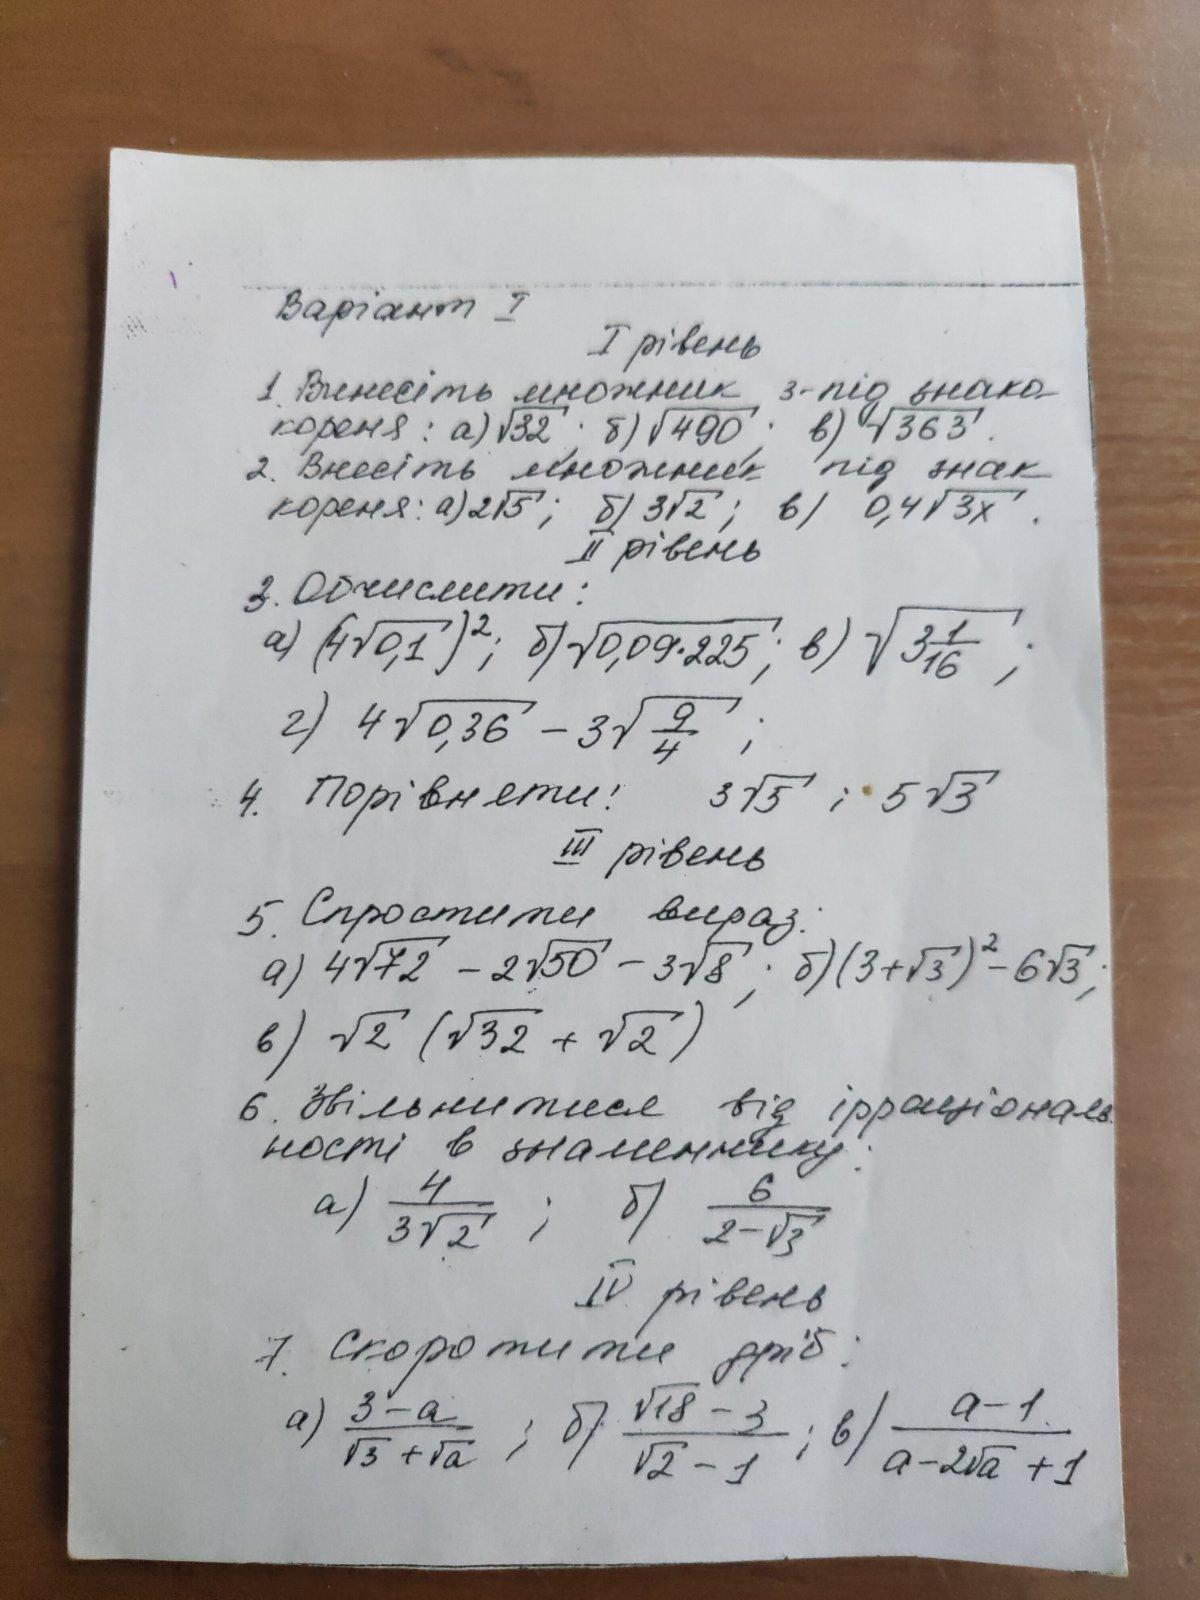 Варіант I
I рівень
1. Винесіть множник з-під знака
кореня: а) √32; б) √490; в) √363.
2. Внесіть множник під знак
кореня: а) 2√5; б) 3√2; в) 0,4√3x.
II рівень
3. Обчислити:
а) (4√0,1)²; б) √0,09·225; в) √3 1/16;
г) 4√0,36 − 3√9/4;
4. Порівняти: 3√5 ; 5√3
III рівень
5. Спростити вираз:
а) 4√72 − 2√50 − 3√8; б) (3+√3)² − 6√3;
в) √2 (√32 + √2)
6. Звільнитися від ірраціональ
ності в знаменнику:
а) 4/3√2 ; б) 6/2−√3
IV рівень
7. Скоротити дріб:
а) 3−a/√3+√a ; б) √18−3/√2−1 ; в) a−1/a−2√a+1